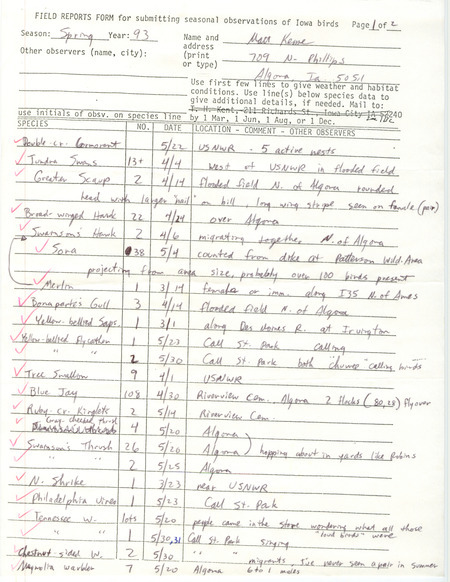 FIELD REPORTS FORM for submitting seasonal observations of Iowa birds Page 1 of 2
Season: Spring Year: 93 Name and address (print or type) Matt Kenne
Other observers (name, city): 709 N. Phillips
Algona Ia. 50511
Use first few lines to give weather and habitat
conditions. Use line(s) below species data to
give additional details, if needed. Mail to:
T. H. Kent, 211 Richards St., Iowa City IA 52240
use initials of obsv. on species line by 1 Mar, 1 Jun, 1 Aug, or 1 Dec.
SPECIES NO. DATE LOCATION - COMMENT - OTHER OBSERVERS
Double cr. Cormorant 5/22 USNWR - 5 active nests
Tundra Swans 13+ 4/4 west of USNWR in flooded field
Greater Scaup 2 4/14 flooded field N. of Algona rounded
head with larger "nail" on bill, long wing stripe seen on female (pair)
Broad-winged Hawk 22 4/24 over Algona
Swainson's Hawk 2 4/6 migrating together N. of Algona
Sora 38 5/4 counted from dike at Patterson Wild. Area
projecting from area size, probably over 100 birds present
Merlin 1 3/14 female or imm. along I35 N. of Ames
Bonaparte's Gull 3 4/14 flooded field N. of Algona
Yellow-bellied Saps. 1 3/1 along Des Moines R. at Irvington
Yellow-bellied Flycatcher 1 5/23 Call St. Park calling
" " 2 5/30 Call St. Park both "chuwee" calling birds
Tree Swallow 9 4/1 USNWR
Blue Jay 108 4/30 Riverview Cem. Algona 2 flocks (80, 28) flyover
Ruby cr. Kinglets 2 5/14 Riverview Cem.
Gray-cheeked thrush 4 5/20 Algona
Swainson's Thrush 26 5/20 Algona ) hopping about in yards like Robins
" " 2 5/25 Algona
N. Shrike 1 3/23 near USNWR
Philadelphia Vireo 1 5/23 Call St. Park
Tennessee W. lots 5/20 people came in the store wondering what all those
"love birds" were
" 1 5/30,31 Call St. Park singing
Chestnut sided W. 2 5/30 " " migrants, I've never seen a pair in summer
Magnolia warbler 7 5/20 Algona 6 to 1 males